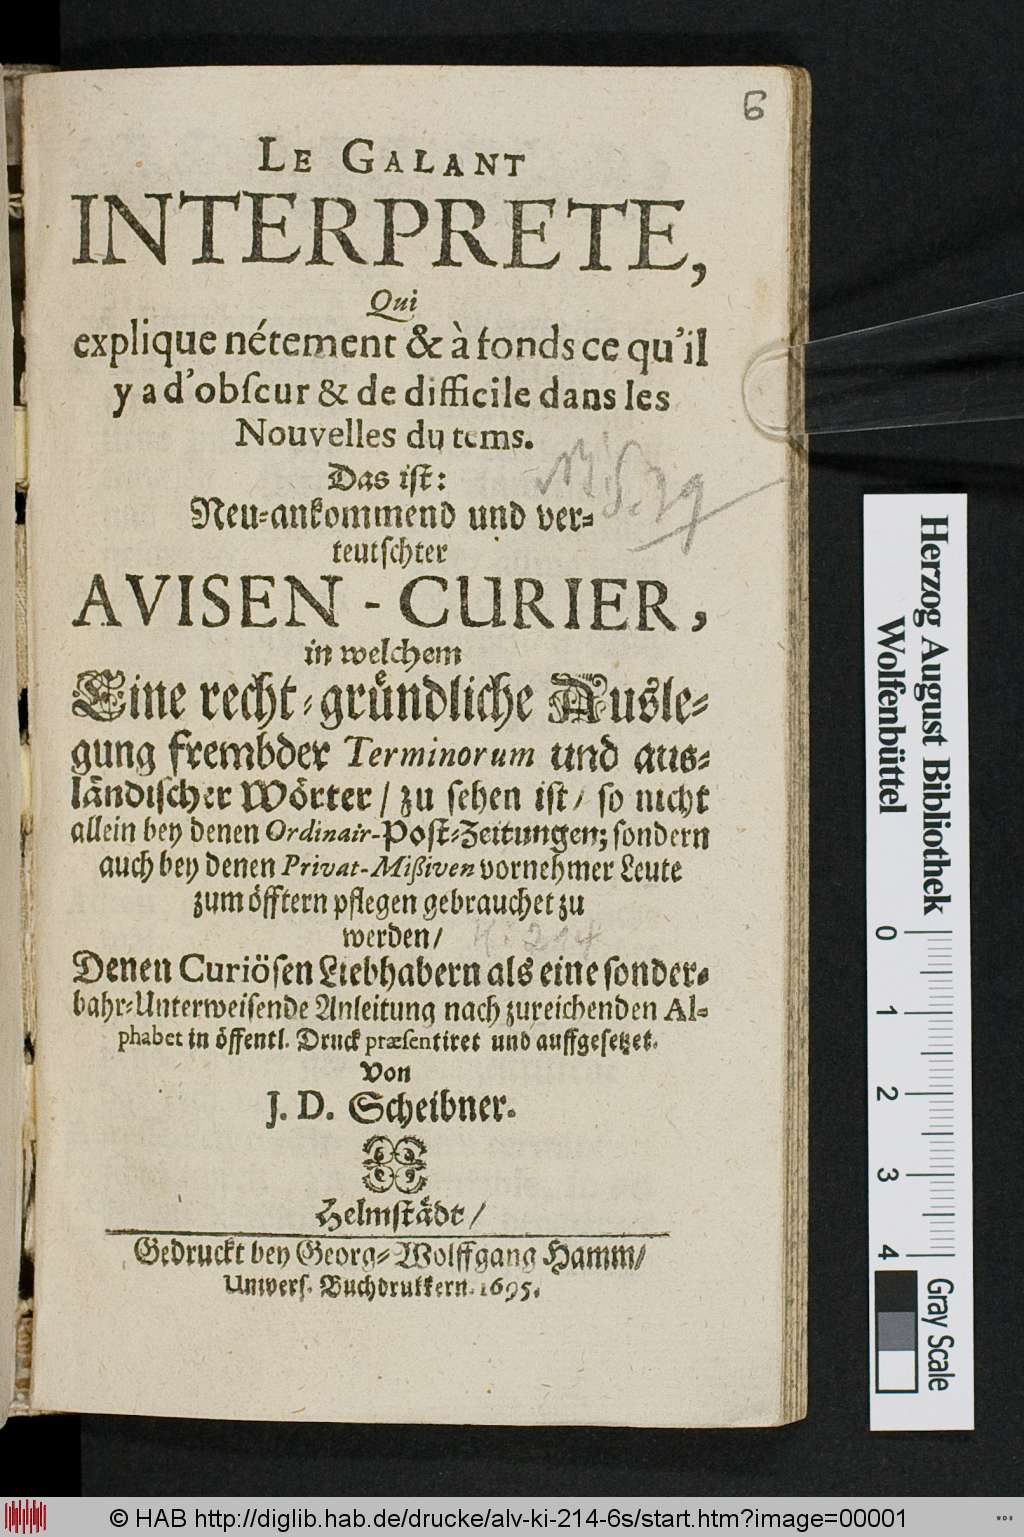 6
LE GALANT
INTERPRETE,
Qui
explique nétement & à fonds ce qu'il
y a d'obſcur & de difficile dans les
Nouvelles du tems.
Das iſt:
Neu-ankommend und ver-
teutſchter
AVISEN - CURIER,
in welchem
Eine recht-gründliche Ausle-
gung frembder Terminorum und aus-
ländiſcher Wörter / zu ſehen iſt / ſo nicht
allein bey denen Ordinair-Poſt-Zeitungen; ſondern
auch bey denen Privat-Mißiven vornehmer Leute
zum öfftern pflegen gebrauchet zu
werden /
Denen Curiöſen Liebhabern als eine ſonder-
bahr-Unterweiſende Anleitung nach zureichenden Al-
phabet in öffentl. Druck præſentiret und auffgeſetzet.
Von
J. D. Scheibner.
Helmſtädt /
Gedruckt bey Georg-Wolffgang Hamm /
Univers. Buchdrukkern. 1695.
Herzog August Bibliothek
Wolfenbüttel
0 1 2 3 4
Gray Scale
© HAB http://diglib.hab.de/drucke/alv-ki-214-6s/start.htm?image=00001